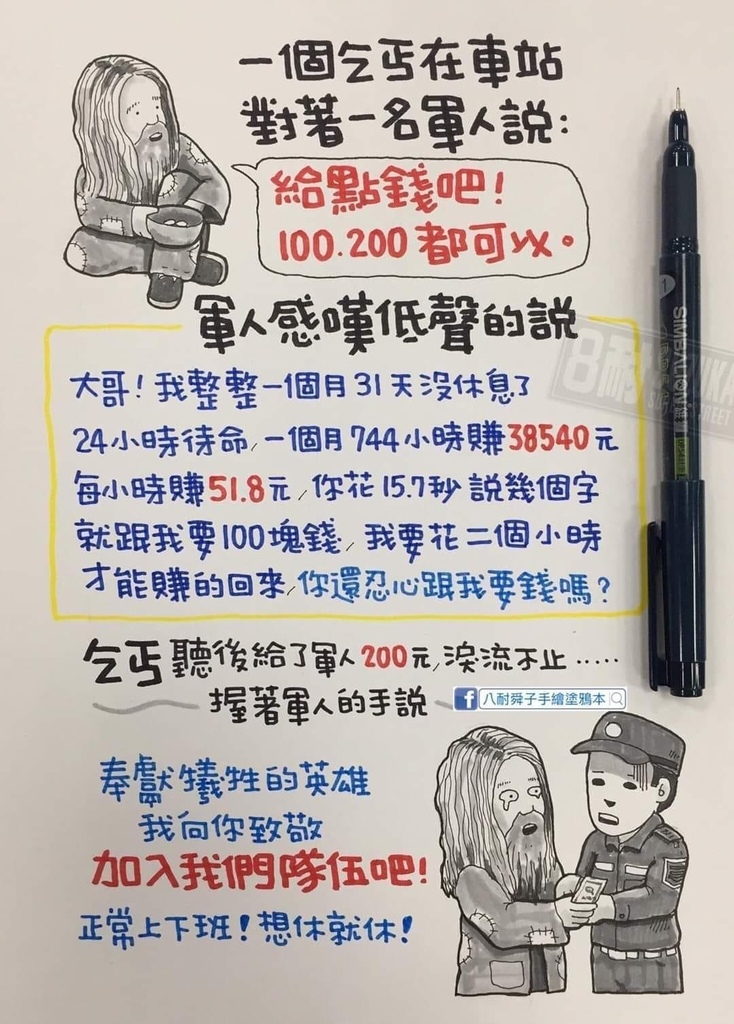 一個乞丐在車站
對著一名軍人說:
給點錢吧!
100.200都可以。
軍人感嘆低聲的說
大哥!我整整一個月31天沒休息了
24小時待命,一個月744小時賺38540元
每小時賺51.8元,你花15.7秒說幾個字
就跟我要100塊錢,我要花二個小時
才能賺的回來,你還忍心跟我要錢嗎?
乞丐聽後給了軍人200元,淚流不止.....
握著軍人的手說
八耐舜子手繪塗鴉本
奉獻犧牲的英雄
我向你致敬
加入我們隊伍吧!
正常上下班!想休就休!
SIMBALION
8耐